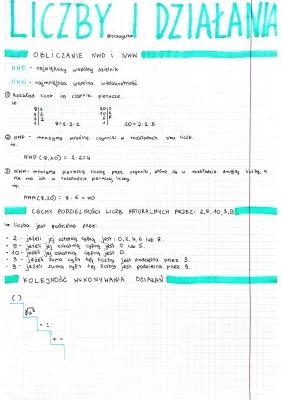 LICZBY I DZIAŁANIA
OBLICZANIE NWD I NWW
NWD - największy wspólny dzielnik
NWW - najmniejsza wspólna wielokrotność
① Rozkład liczb na czynniki pierwsze.
np.
8 2 20 2
4 2 10 2
2 2 5 5
1 8=2·2·2 1 20=2·2·5
② NWD - mnożymy wspólne czynniki w rozkładach obu liczb.
np.
NWD (8,20) = 2·2=4
③ NWW- mnożymy pierwszą liczbę przez czynniki, które są w rozkładzie drugiej liczby, a
nie ma ich w rozkładzie pierwszej liczby.
np.
NWW(8,20) = 8·5=40
CECHY PODZIELNOŚCI LICZB NATURALNYCH PRZEZ: 2,5,10,3,9
↳ liczba jest podzielna przez:
• 2 - jeżeli jej ostatnią cyfrą jest: 0,2,4,6 lub 8.
• 5 - jeżeli jej ostatnią cyfrą jest 0 lub 5.
• 10 - jeżeli jej ostatnią cyfrą jest 0.
• 3 - jeżeli suma cyfr tej liczby jest podzielna przez 3.
• 9 - jeżeli suma cyfr tej liczby jest podzielna przez 9.
KOLEJNOŚĆ WYKONYWANIA DZIAŁAŃ
( )
• :
+ -